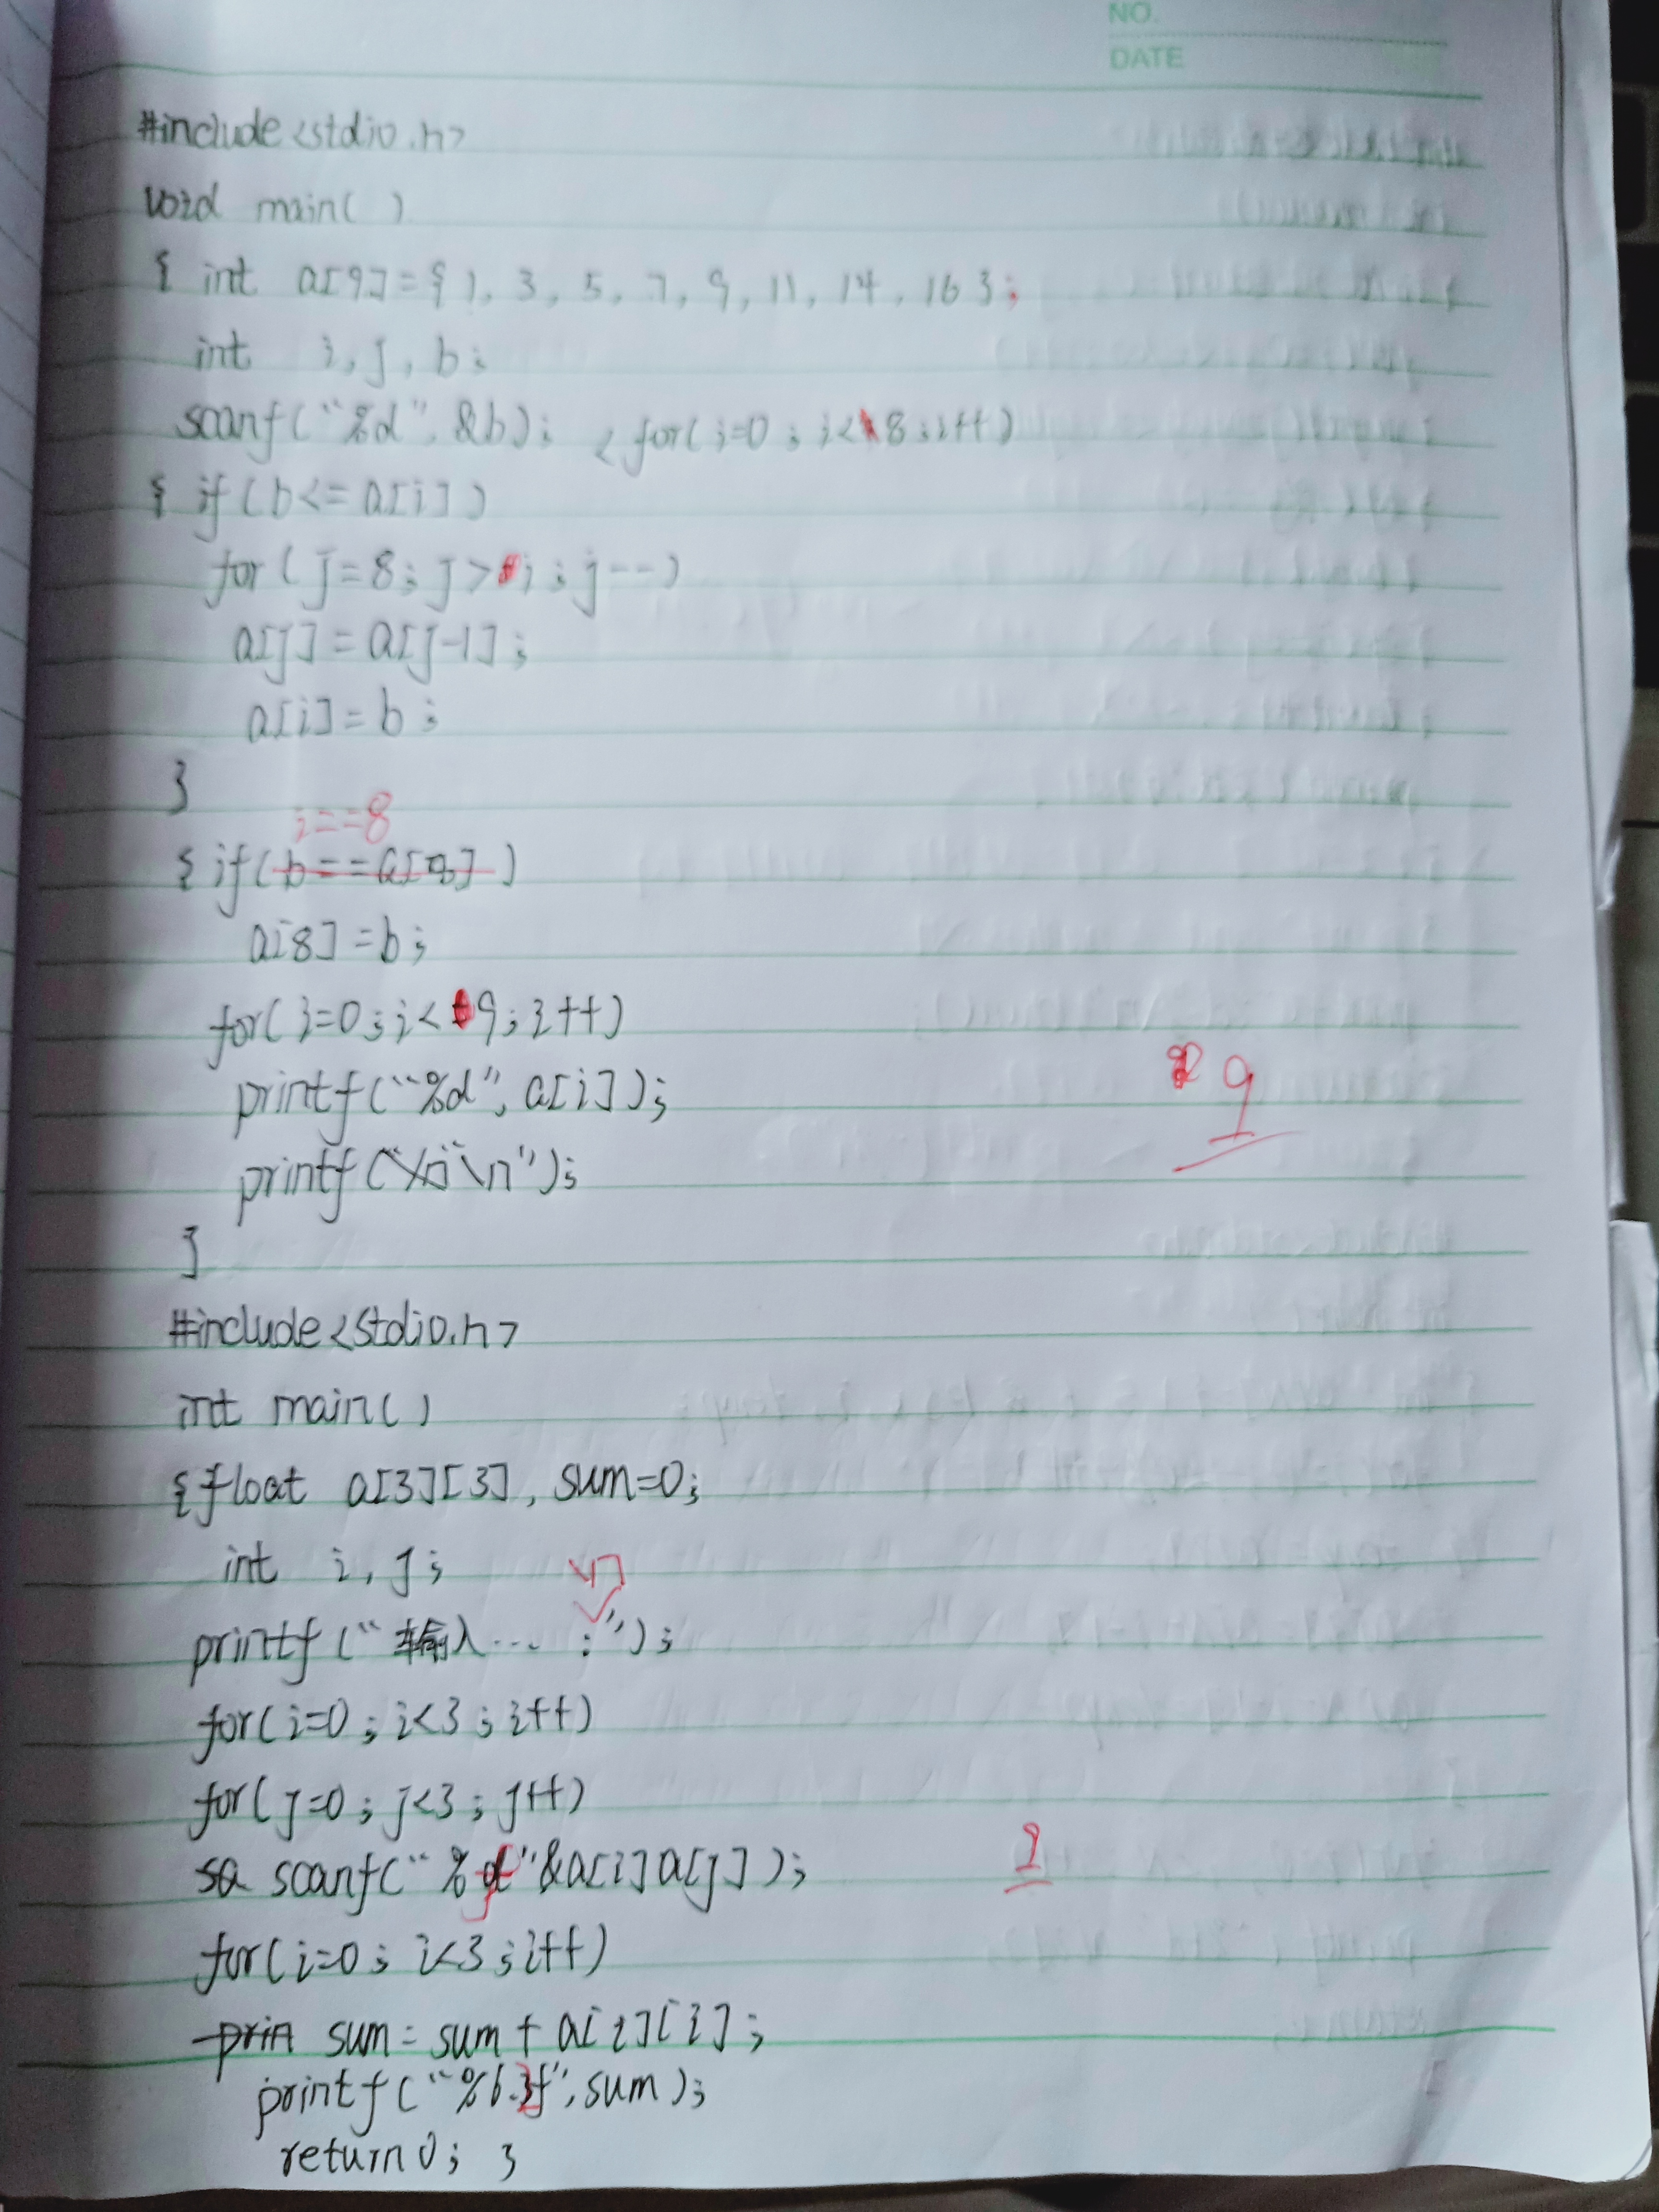 NO.
DATE
#include<stdio.h>
void main()
{ int a[9]={1,3,5,7,9,11,14,16};
int i,j,b;
scanf("%d",&b); <for(i=0;i<8;i++)
{ if(b<=a[i])
for(j=8;j>i;j--)
a[j]=a[j-1];
a[i]=b;
}
i==8
{ if(b==a[8])
a[8]=b;
for(i=0;i<9;i++)
printf("%d",a[i]);
9
printf("\n");
}
#include<stdio.h>
int main()
{float a[3][3],sum=0;
int i,j;
\n
printf("输入... :");
for(i=0;i<3;i++)
for(j=0;j<3;j++)
sa scanf("%f"&a[i]a[j]);
for(i=0;i<3;i++)
prin sum=sum+a[i][i];
printf("%6.2f",sum);
return 0; }